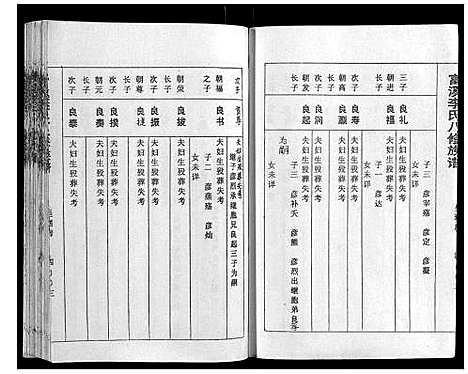 富溪李氏八修族谱
三子 良礼
子三 彦宰殇 彦定 彦凝
朝进 良福
夫妇生殁葬失考
次子 良寿
子一 彦达
女未详
朝高 良灏
夫妇生殁葬失考
长子 良润
夫妇生殁葬失考
朝发 良起
夫妇生殁葬失考
长子
子三 彦补夭 彦熊 彦烈出继胞弟良
为嗣
次子
继子彦烈承继胞兄良起三子为嗣
朝福 良书
夫妇生殁葬失考
之子
子二 彦蕴殇 彦灿
女未详
朝荣 良拔
夫妇生殁葬失考
次子 良振
夫妇生殁葬失考
朝尊 良捷
夫妇生殁葬失考
长子 良揆
夫妇生殁葬失考
朝元 良奏
夫妇生殁葬失考
次子
长子 良泰
夫妇生殁葬失考